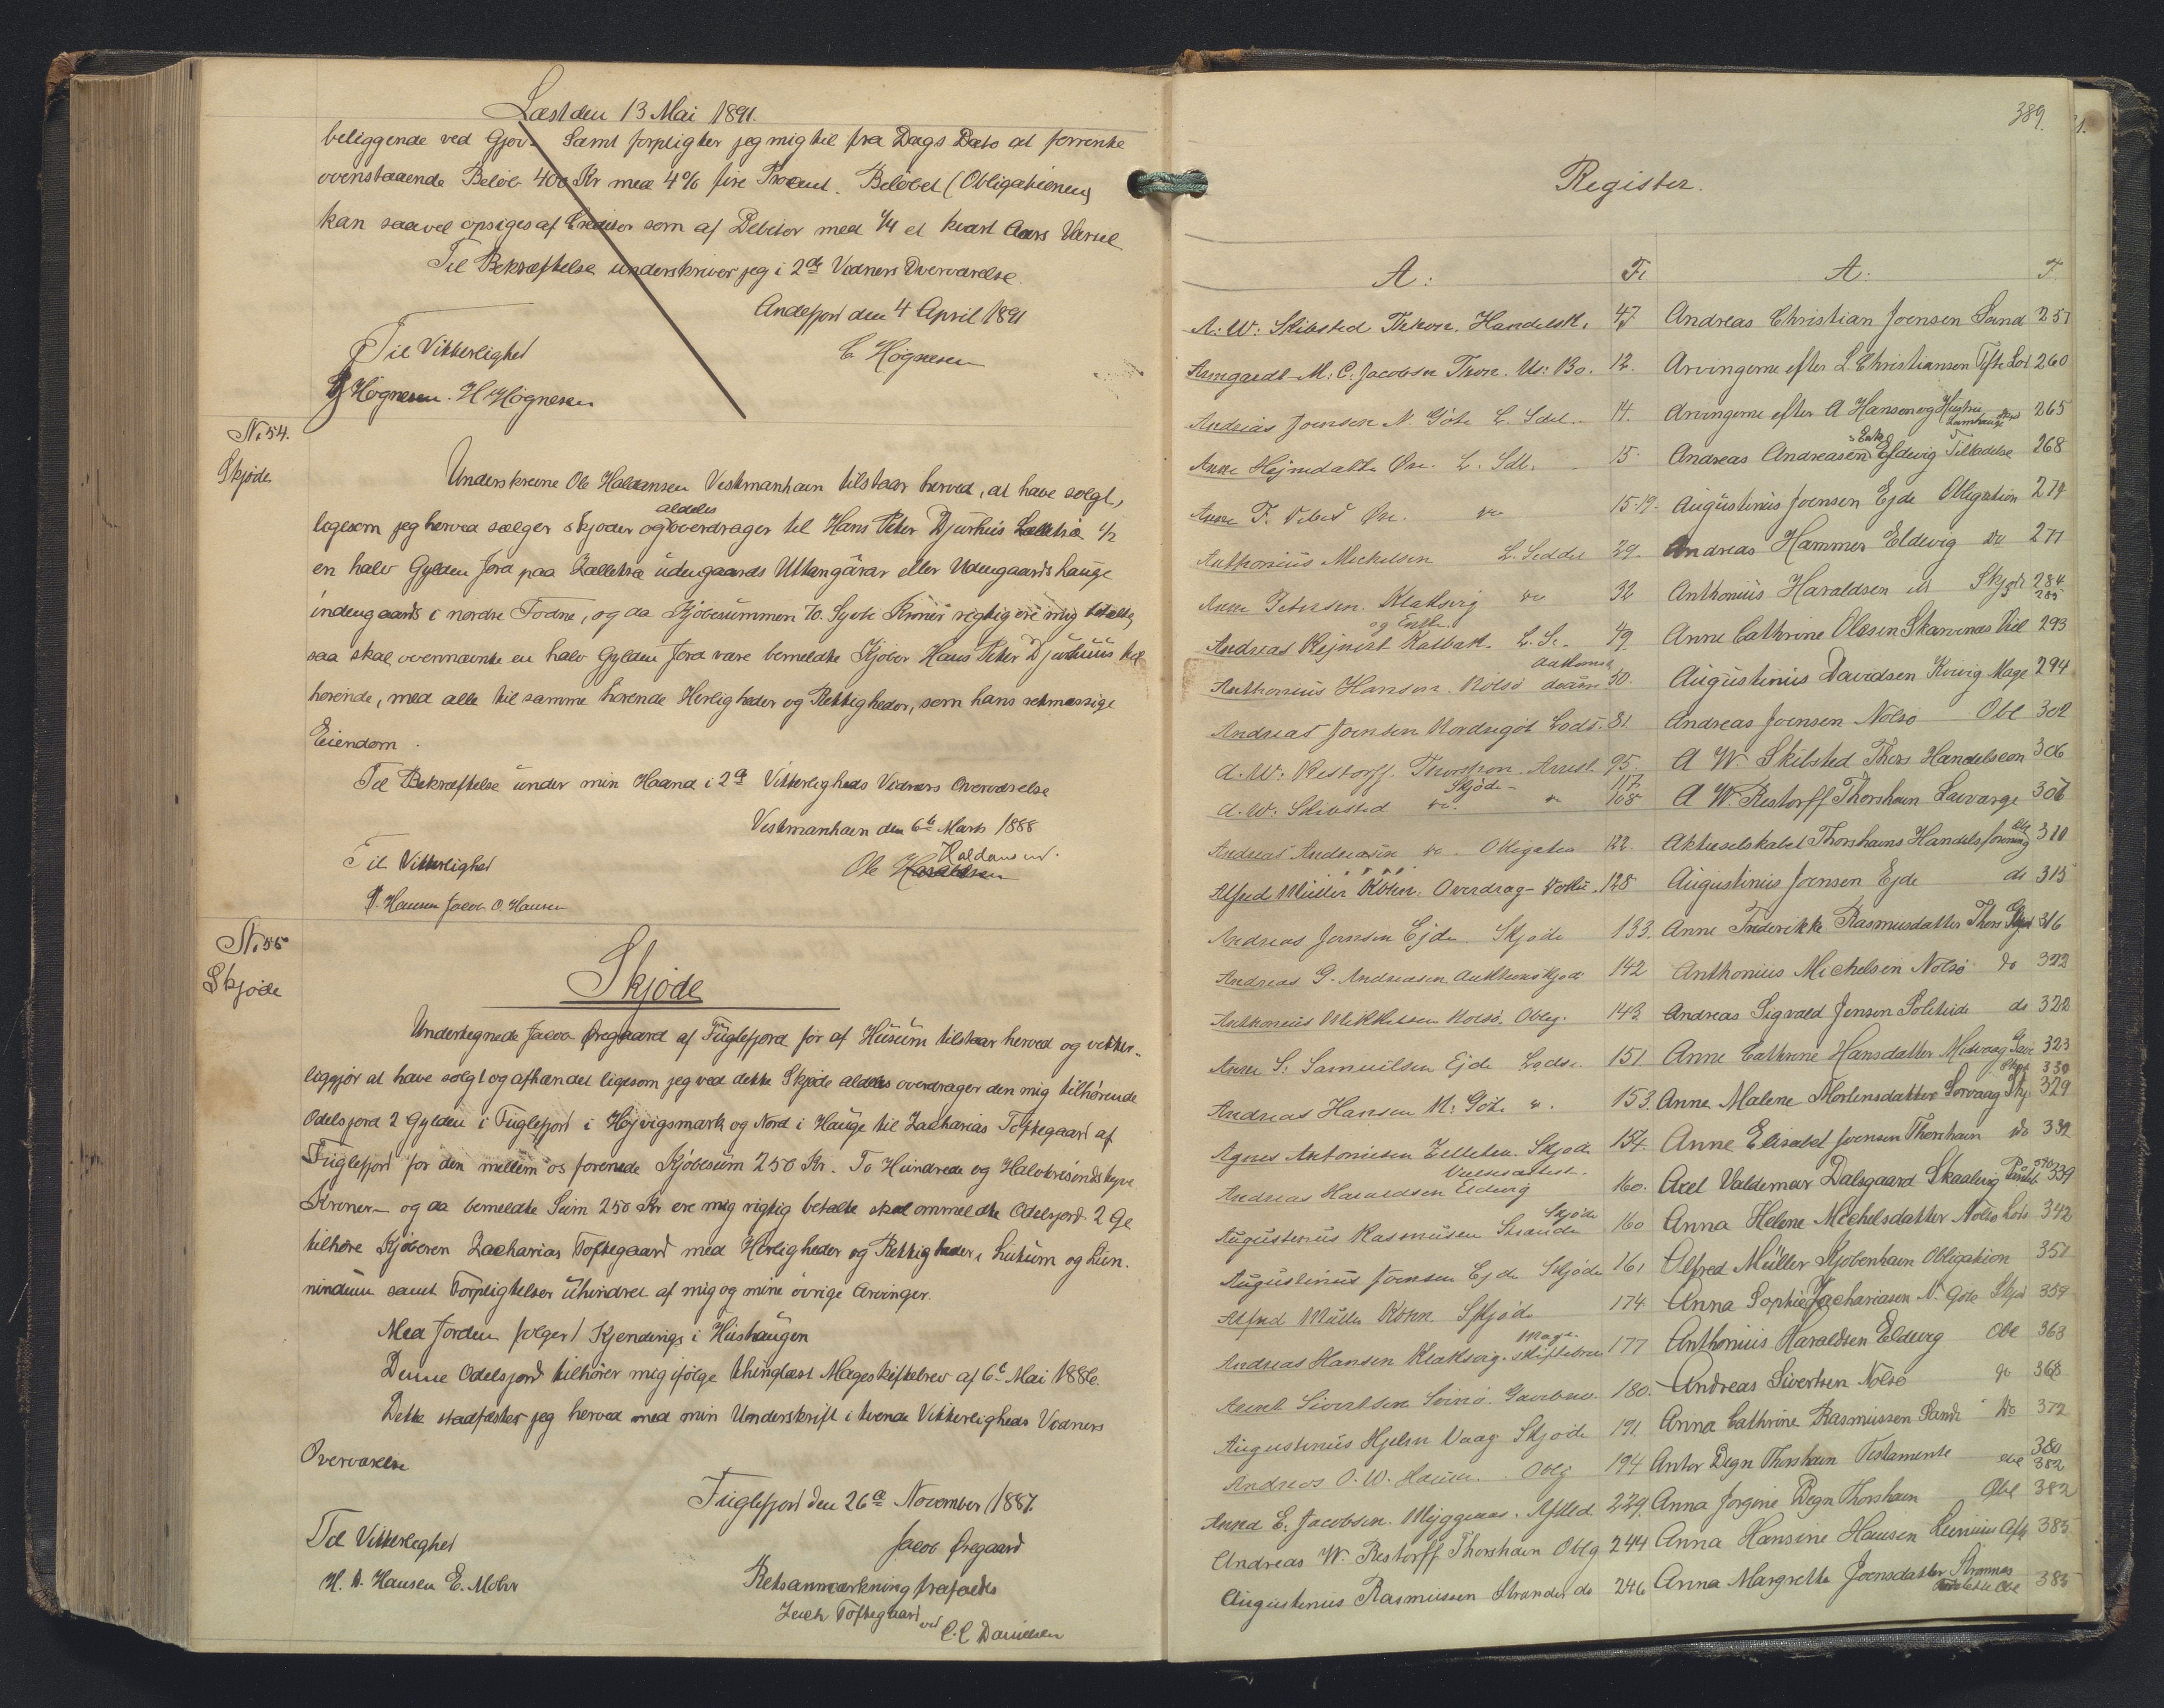 Læst den 13 Mai 1891.
beliggende ved Gjov. Samt forpligter jeg mig til fra Dags Dato at forrente
ovenstaaende Beløb 400 Kr med 4% fire Procent. Beløbet (Obligationen)
kan saavel opsiges af Creditor som af Debitor med 1/4 et kvart Aars Varsel
Til Bekræftelse underskriver jeg i 2de Vidners Overværelse.
Andefjord den 4 April 1891
Til Vitterlighed
C Høgnesen
Høgnesen. H Høgnesen
No 54.
Skjøde
Underskrevne Ole Haldansen Vestmanhavn tilstaar herved, at have solgt,
ligesom jeg herved sælger skjøder og aldeles overdrager til Hans Peter Djurhuus 1/2
en halv Gylden Jord paa udengaards Uttangárar eller Udengaards hauge
indengaards i nordre Todne, og da Kjøbesummen 70. Syvti Kroner rigtig ere mig betalte,
saa skal ovennævnte en halv Gylden Jord være bemeldte Kjøber Hans Peter Djurhuus til
hørende, med alle til samme hørende Herligheder og Rettigheder, som hans retmæssige
Eiendom.
Til Bekræftelse under min Haand i 2de Vitterligheds Vidners Overværelse
Vestmanhavn den 6te Marts 1888
Til Vitterlighed
Haldansen.
Ole Haraldsen
P. Hansen Jacob O. Hansen
No 55
Skjøde
Skjøde
Undertegnede Jacob Øregaard af Fuglefjord før af Husum tilstaar herved og vitter-
liggjør at have solgt og afhændet ligesom jeg ved dette Skjøde aldeles overdrager den mig tilhørende
Odelsjord 2 Gylden i Fuglefjord i Højvigsmark og Nord i Hauge til Zacharias Toftegaard af
Fuglefjord for den mellem os forenede Kjøbesum 250 Kr. To Hundrede og Halvtresindstyve
Kroner – og da bemeldte Sum 250 Kr ere mig rigtig betalte skal ommeldte Odelsjord 2 Gl
tilhøre Kjøberen Zacharias Toftegaard med Herligheder og Rettigheder, Lutum og Lun-
nindum samt Forpligtelser uhindret af mig og mine øvrige Arvinger.
Med Jorden følger 1 Kjendings i Hushaugen
Denne Odelsjord tilhører mig ifølge thinglæst Mageskiftebrev af 6te Mai 1886.
Dette stadfæster jeg herved med min Underskrift i tvende Vitterligheds Vidners
Overværelse
Fuglefjord den 26de November 1887.
Til Vitterlighed
Jacob Øregaard
H. D. Hansen E. Mohr
Retsanmærkning frafaldes
Zach Toftegaard
ved C. C Danielsen
389.
Register.
A: Fo A: F.
A. W: Skibsted Thhvn. Handelsk. 47 Andreas Christian Joensen Sand 251
Armgardt M. C. Jacobsen Thvn. Us: Bo. 12. Arvingerne efter L. Christiansen Tofte Lod 260
Andreas Joensen N. Göte L. Sdel. 14. Arvingerne efter A Hansen og Hustru Lamhauge 265
Anne Hejmdalte L. Sdl. 15. Andreas Andreasens Enke Eldevig Tilladelse 268
15-19. Augustinus Joensen Ejde Obligation 274
Anthonius Mickelsen L. Seddel 29. Andreas Hammer Eldevig do 277
Anne Petersen. Klaksvig do 32 Anthonius Haraldsen do Skjøde 284 285
Andreas Rejnert Kalbak og L. S. 49. Anne Cathrine Olesen Skarvenæs 293
Anthonius Hansen. Nolsø 50. Augustinius Davidsen Kvivig Mage 294
Andreas Joensen Nordregöt Lods. 81 Andreas Joensen Nolsø Obl 302
A. W: Restorff. Thorshavn. Arrest 95. A W. Skibsted Thors Handelscon 306
A. W: Skibsted do. Skjøde – do 117 108 A W. Restorff Thorshavn Sørvaag 306
Andreas Andreasen do. Obligation 122. Aktieselskabet Thorshavns Handelsforening Obl 310
Alfred Müller Kbhn. Overdrag – 128 Augustinius Joensen Ejde do 315
Andreas Joensen Ejde. Skjøde 133. Anne Frederikke Rasmusdatter Thors Skjød 316
Andreas G. Andreasen Auktionsskjøde 142 Anthonius Michelsen Nolsø do 322
Anthonius Mikkelsen Nolsø. Oblig. 143. Andreas Sigvald Jensen Politied do 322
Anne S. Samuelsen Ejde Lodse. 151 Anne Cathrine Hansdatter Midvaag Gave 323 330
Andreas Hansen N. Göte do. 153. Anne Malene Mortensdatter Sorvaag Skj. 329
Agnes Antoniesen Skjøde 154. Anne Elisabet Joensen Thorshavn do 332
Andreas Haraldsen Eldevig 160. Axel Valdemar Dalsgaard Skaalevig Pantobl 339
Augustinus Rasmusen Strander Skjøde 160 Anna Helene Michelsdatter Nolsø Lods 342
Augustinus Joensen Ejde Skjøde 161 Alfred Müller Kjøbenhavn Obligation 351
Alfred Müller Kbhn Skjøde 174 Anna Sophie Zachariasen N. Göte Skjød 359
Andreas Hansen Klaksvig. Mage skiftebrev 177 Anthonius Haraldsen Eldevig Obl 363
Sivertsen Gavebrev 180. Andreas Sivertsen Nolsø do 368
Augustinus Hjelm Vaag Skjøde 191 Anna Cathrine Rasmussen Sand do 372
Andreas O. W. Hansen. Oblg 194 Anton Degn Thorshavn Testamente 380 382
Anna E. Jacobsen. Myggenæs. 229. Anna Jorgine Degn Thorshavn Obl 382
Andreas W. Restorff Thorshavn Oblg 244 Anna Hansine Hansen 385
Augustinus Rasmussen Strander do 246 Anna Margrethe Joensdatter Strømnæs Obl 385